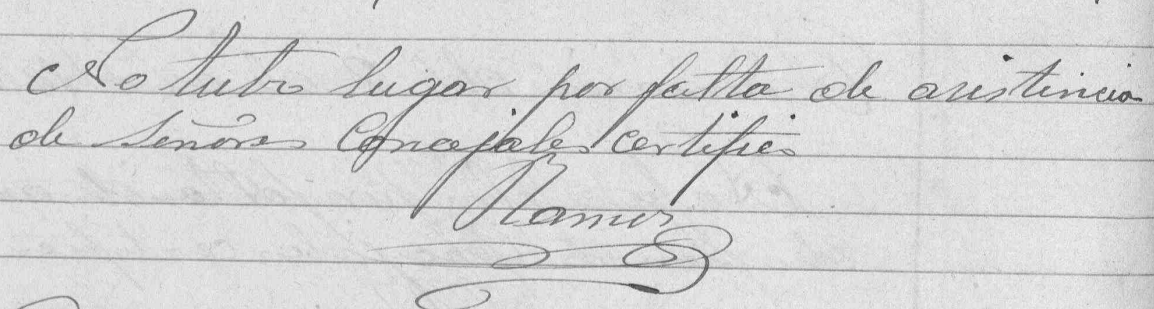 No tubo lugar por falta de asistencia
de Señores Concejales certifico
Ramos